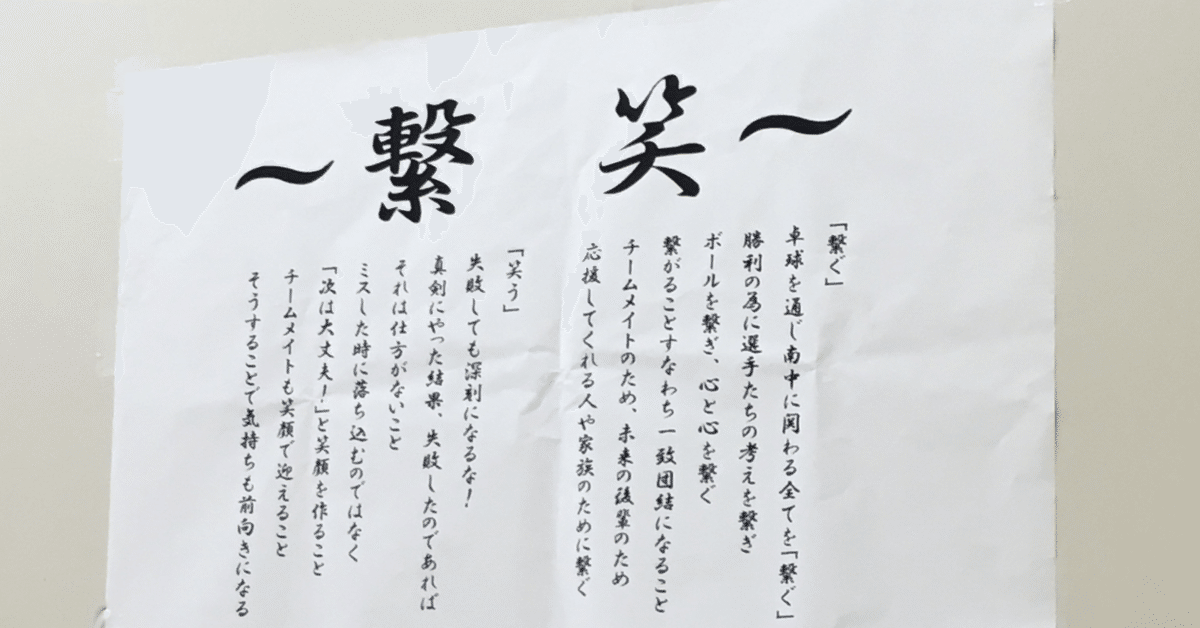 ～笑 繋～
「繋ぐ」
卓球を通じ南中に関わる全てを「繋ぐ」
勝利の為に選手たちの考えを繋ぎ
ボールを繋ぎ、心と心を繋ぐ
繋がることすなわち一致団結になること
チームメイトのため、未来の後輩のため
応援してくれる人や家族のために繋ぐ
「笑う」
失敗しても深刻になるな！
真剣にやった結果、失敗したのであれば
それは仕方がないこと
ミスした時に落ち込むのではなく
「次は大丈夫！」と笑顔を作ること
チームメイトも笑顔で迎えること
そうすることで気持ちも前向きになる